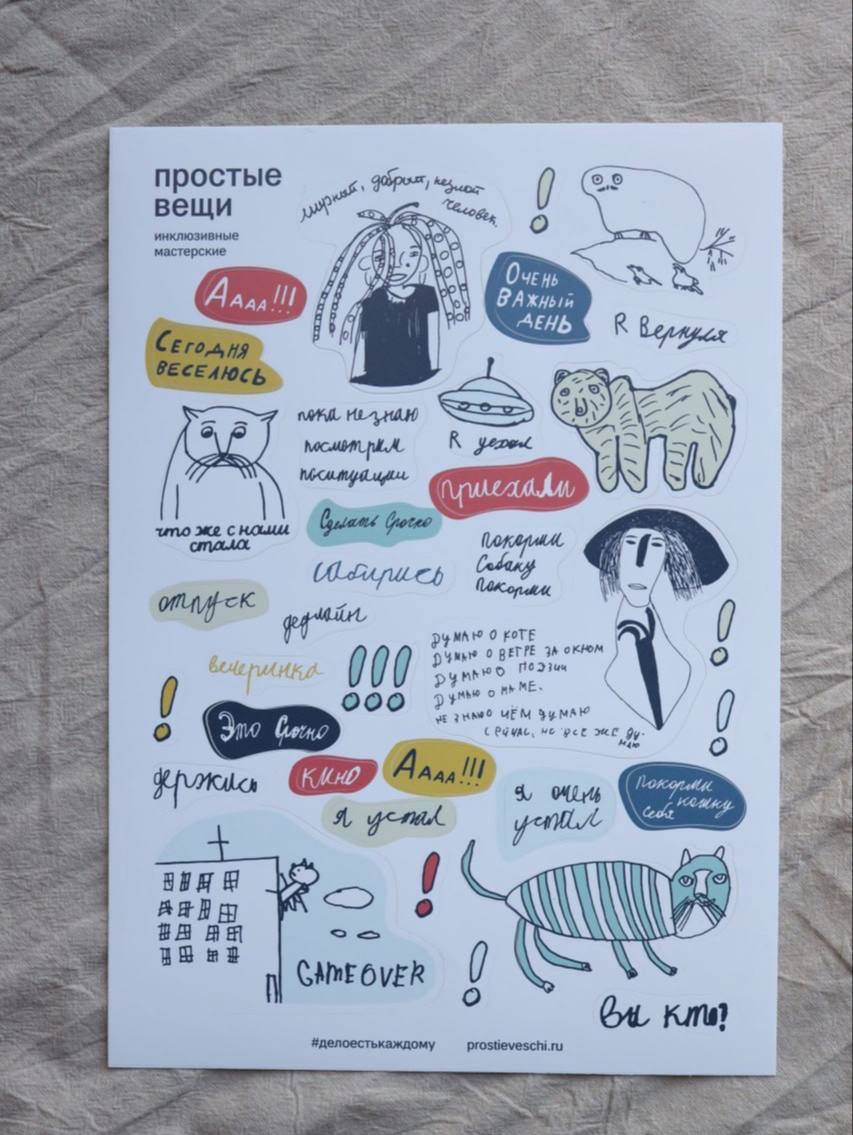 простые
вещи
инклюзивные
мастерские
мирный, добрый, незлой
человек.
Аааа!!!
Очень
важный
день
R Вернулся
Сегодня
веселюсь
пока не знаю
посмотрим
поситуации
R уехал
приехали
что же с нами
стала
Сделать Срочно
покорми
Собаку
покорми
собирись
отпуск
дедлайн
думаю о коте
думаю о ветре за окном
думаю о поэзии
думаю о маме.
не знаю о чём думаю
сейчас, но все же ду-
маю
вечеринка
!!!
Это Срочно
держись
кино
Аааа!!!
я устал
я очень
устал
покорми
кошку
себя
GAMEOVER
Вы кто?
#делоестькаждому
prostieveschi.ru